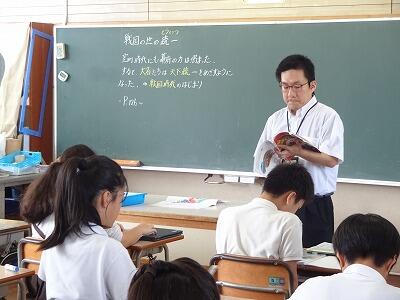 とういつ
戦国の世の統一
室町時代にも幕府の力は衰え、
すると 大名たちは 天下統一をめざすように
なった。⇒戦国時代のはじまり